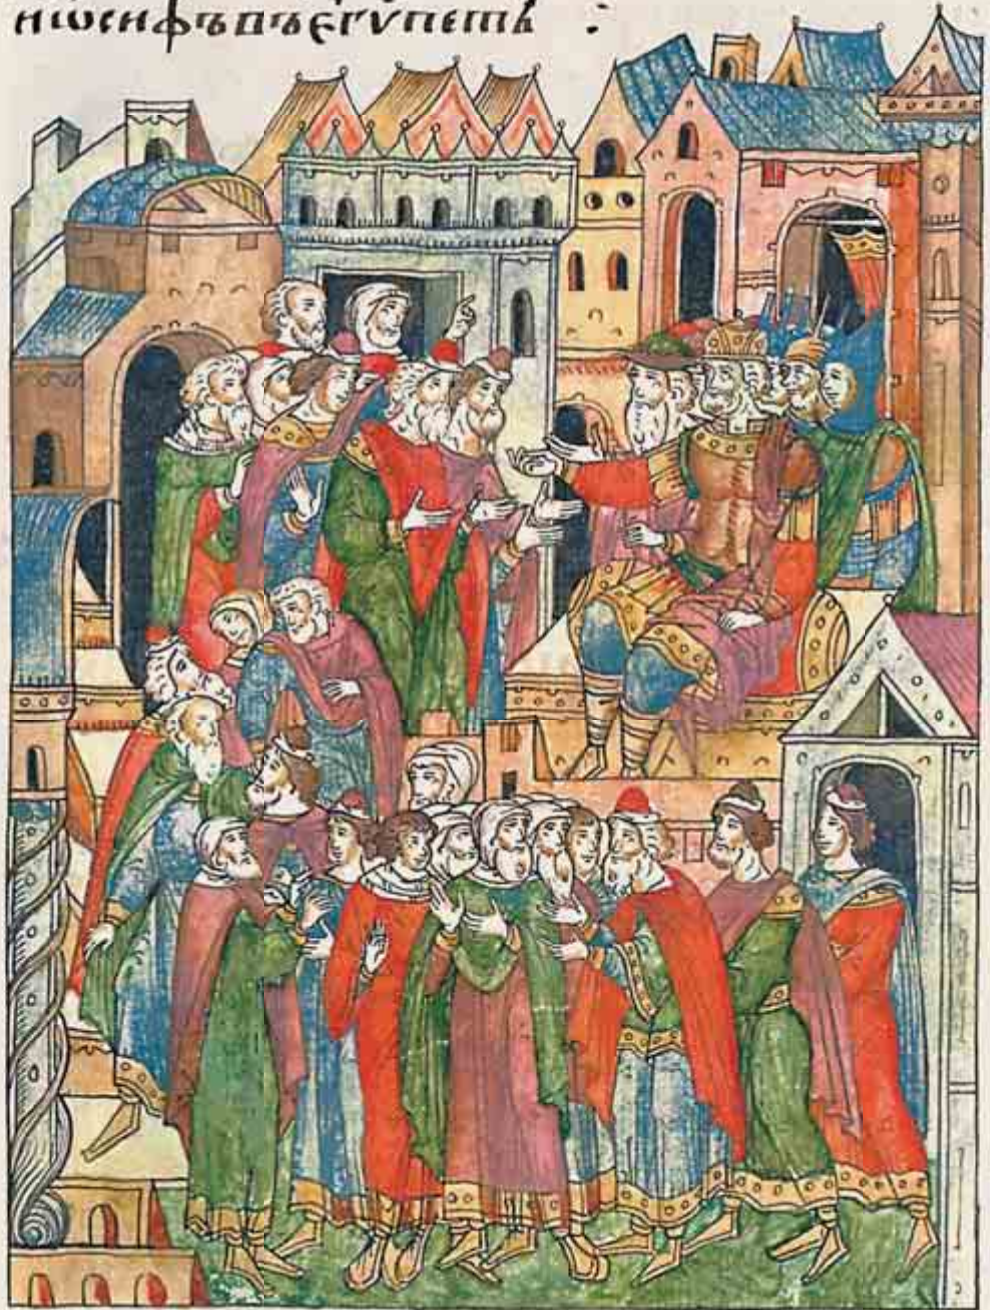 иѡсифъ въ єгѵпетѣ :